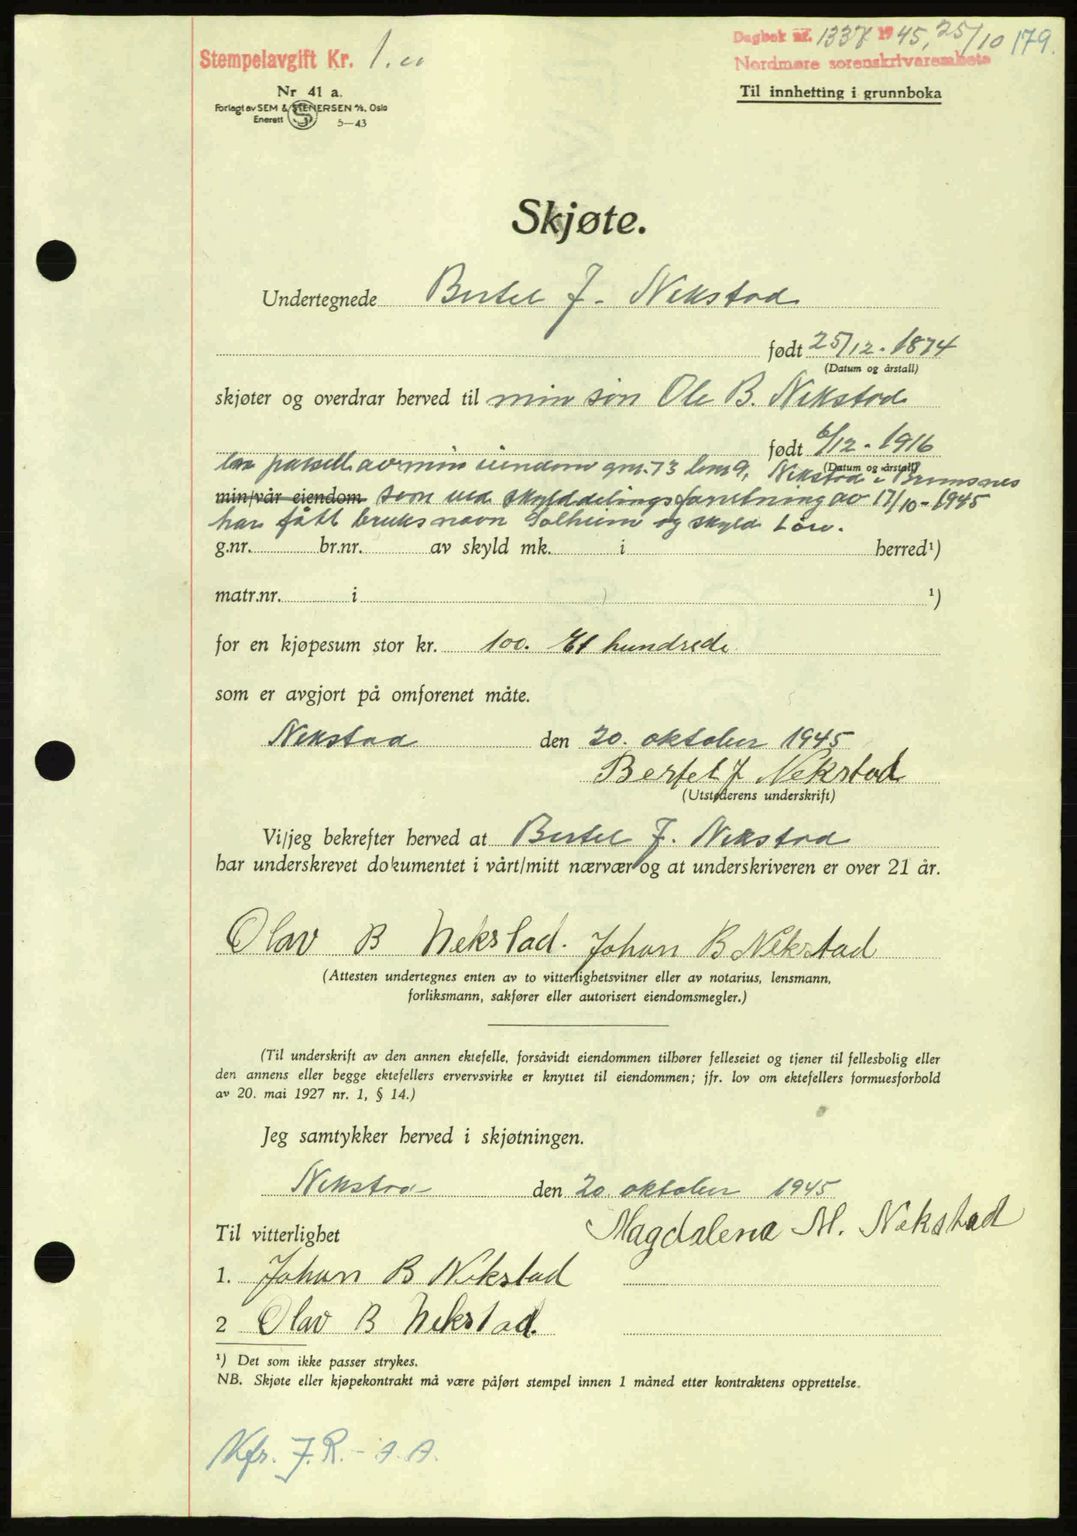 Stempelavgift Kr. 1.00
Dagbok nr. 1337 1945, 25/10 179.
Nordmøre sorenskriverembete
Nr 41 a.
Forlagt av SEM & STENERSEN A/S, Oslo
Enerett 5—43
Til innhefting i grunnboka
Skjøte.
Undertegnede Bertel J. Nekstad
født 25/12 - 1874
(Datum og årstall)
skjøter og overdrar herved til min sön Ole B. Nekstad
født 6/12 - 1916
(Datum og årstall)
en parsell av min eiendom gnr. 73 bnr 9, Nekstad i Bremsnes
min/vår eiendom som ved skylddelingsforretning av 17/10 - 1945
har fått bruksnavn Solheim og skyld 1 öre.
g.nr. br.nr. av skyld mk. i herred¹)
matr.nr. i ¹)
for en kjøpesum stor kr. 100. Et hundrede
som er avgjort på omforenet måte.
Nekstad den 20. oktober 1945
Bertel J Nekstad
(Utstederens underskrift)
Vi/jeg bekrefter herved at Bertel J. Nekstad
har underskrevet dokumentet i vårt/mitt nærvær og at underskriveren er over 21 år.
Olav B Nekstad. Johan B Nekstad
(Attesten undertegnes enten av to vitterlighetsvitner eller av notarius, lensmann,
forliksmann, sakfører eller autorisert eiendomsmegler.)
(Til underskrift av den annen ektefelle, forsåvidt eiendommen tilhører felleseiet og tjener til fellesbolig eller
den annens eller begge ektefellers ervervsvirke er knyttet til eiendommen; jfr. lov om ektefellers formuesforhold
av 20. mai 1927 nr. 1, § 14.)
Jeg samtykker herved i skjøtningen.
Nekstad den 20. oktober 1945
Magdalena M. Nekstad
Til vitterlighet
1. Johan B Nekstad
2 Olav B Nekstad.
¹) Det som ikke passer strykes.
NB. Skjøte eller kjøpekontrakt må være påført stempel innen 1 måned etter kontraktens opprettelse.
Kfr. J. R. - A. A.